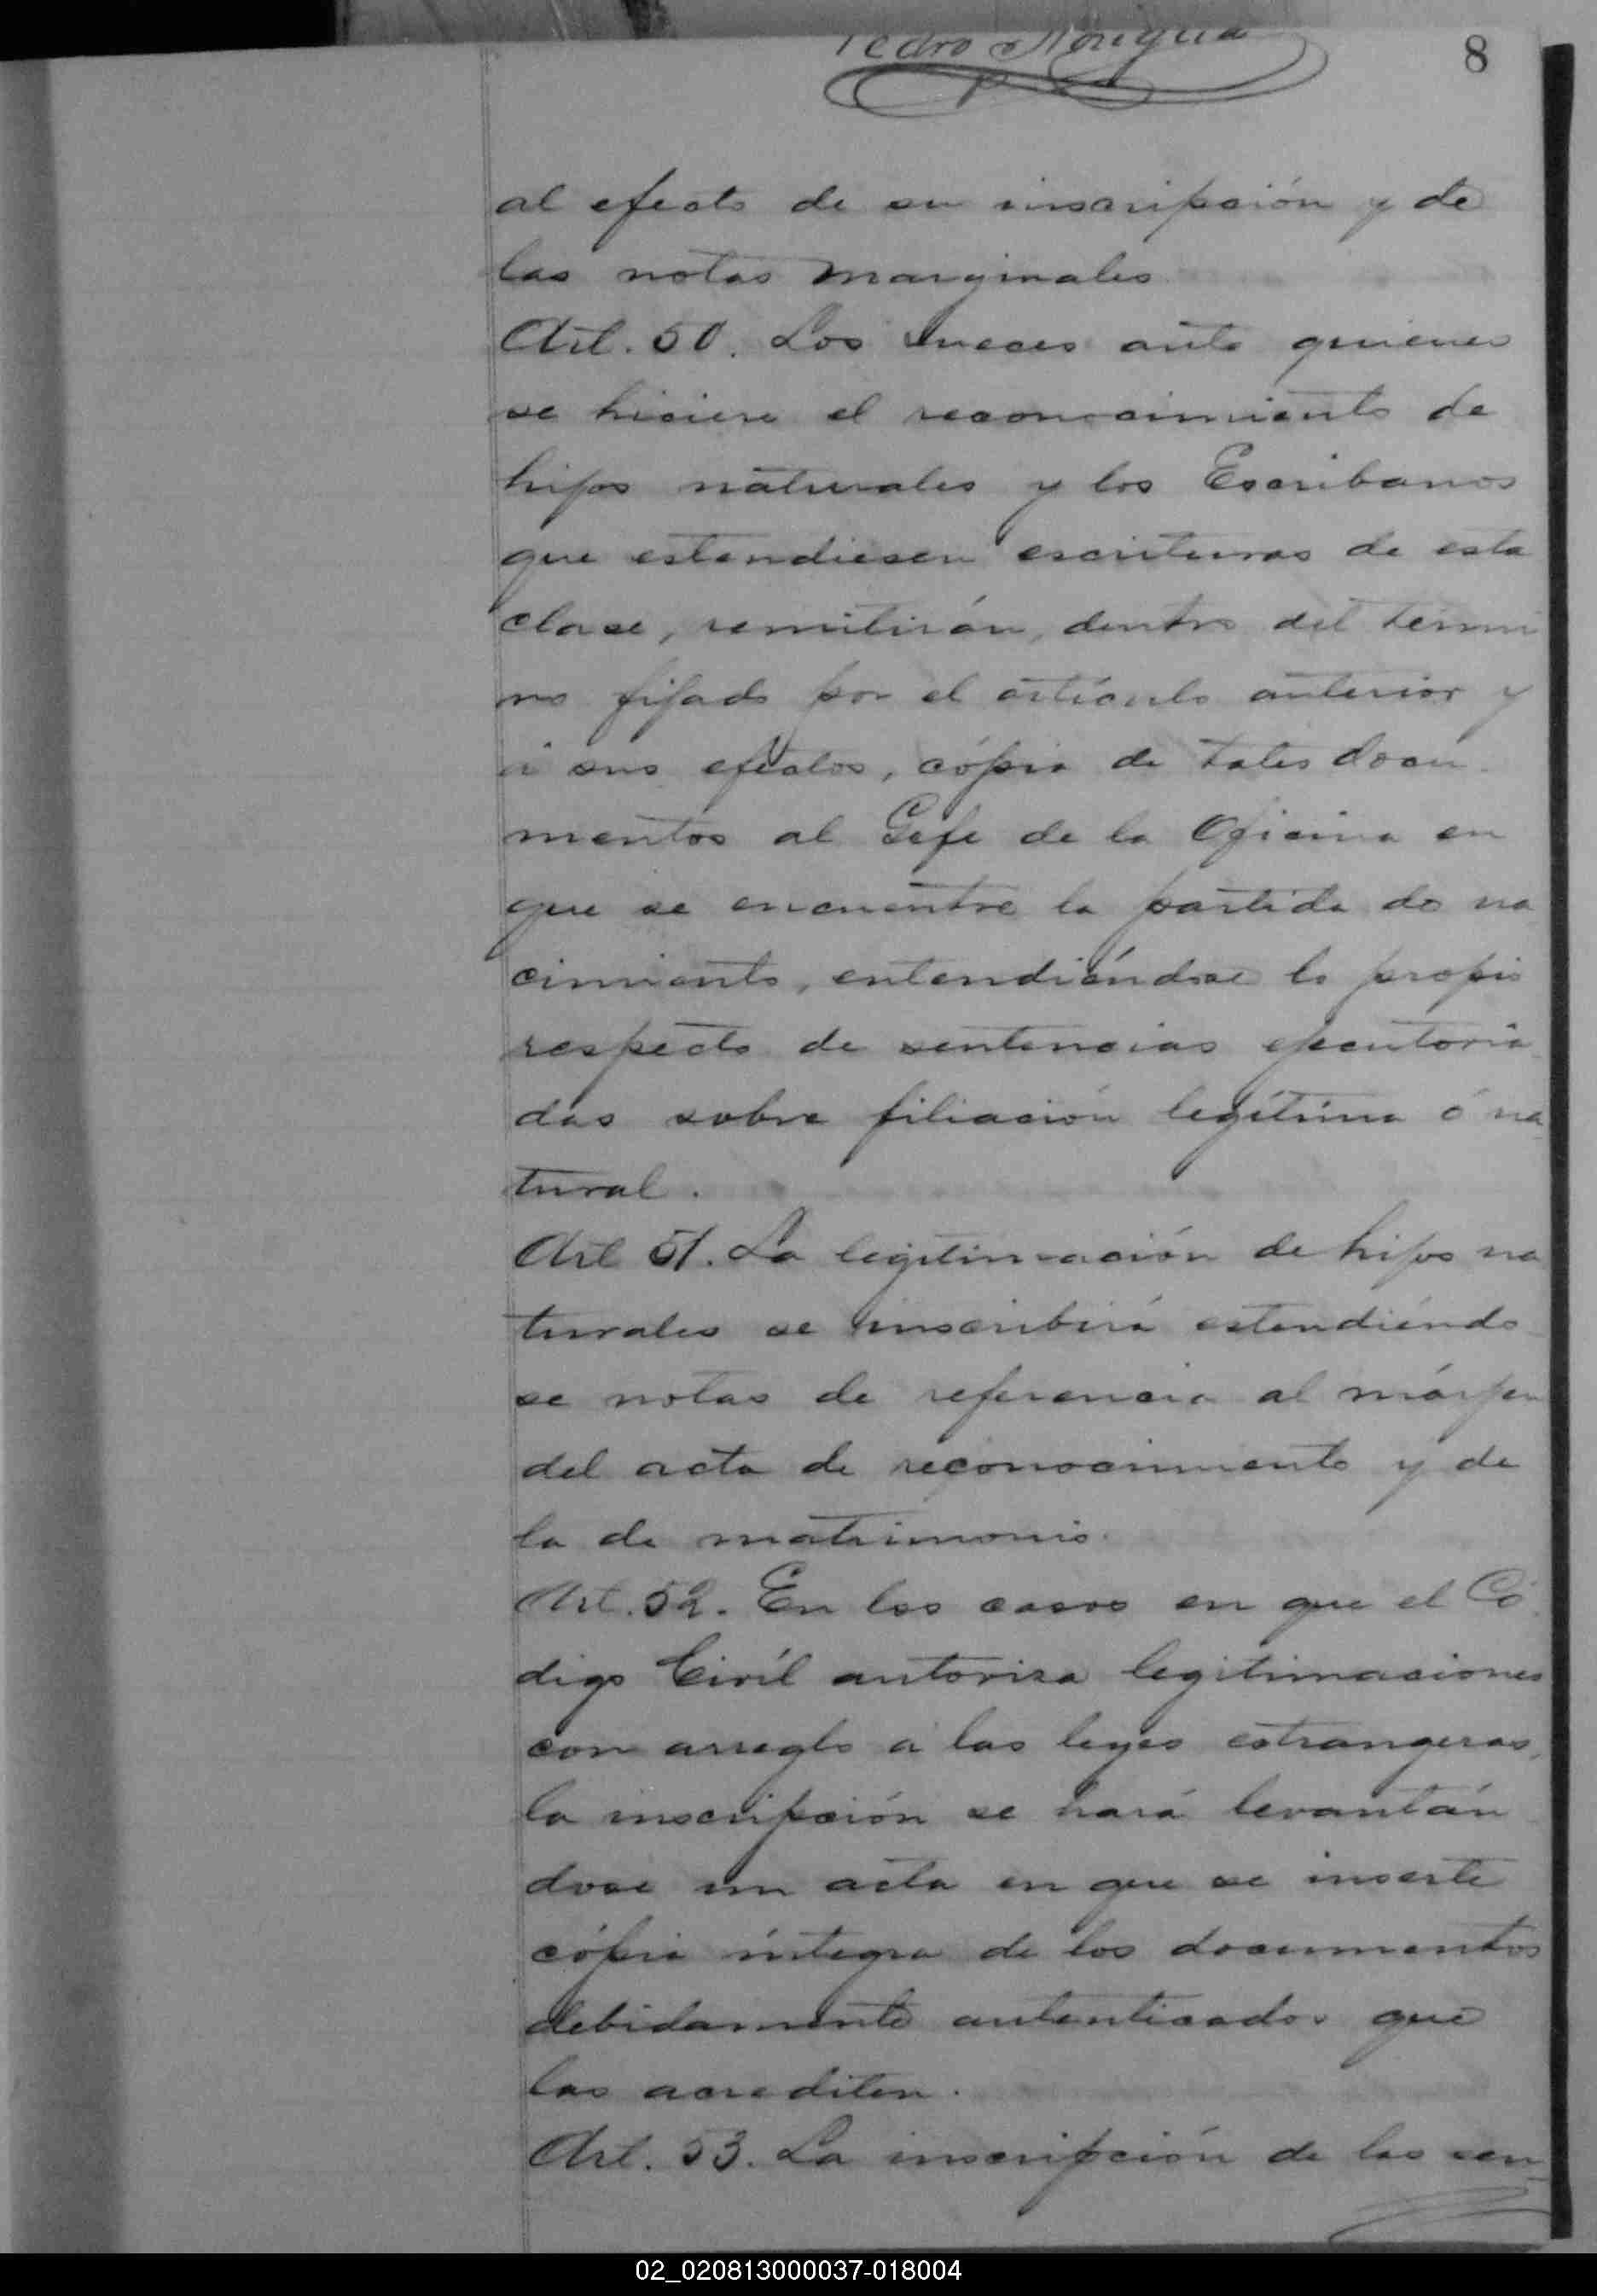 Pedro
8
al efecto de su inscripción y de
las notas marginales
Art. 50. Los Jueces ante quienes
se hiciere el reconocimiento de
hijos naturales y los Escribanos
que estendiesen escrituras de esta
clase, remitirán, dentro del térmi
no fijado por el artículo anterior y
á sus efectos, cópia de tales docu
mentos al Gefe de la Oficina en
que se encuentre la partida de na
cimiento, entendiéndose lo propio
respecto de sentencias ejecutoria
das sobre filiación legítima ó na
tural.
Art 51. La legitimación de hijos na
turales se inscribirá estendiéndo
se notas de referencia al márjen
del acta de reconocimiento y de
la de matrimonio.
Art. 52. En los casos en que el Có
digo Civíl autoriza legitimaciones
con arreglo á las leyes estrangeras,
la inscripción se hará levantán
dose un acta en que se inserte
cópia íntegra de los documentos
debidamente autenticados que
las acrediten.
Art. 53. La inscripción de las sen
02_020813000037-018004